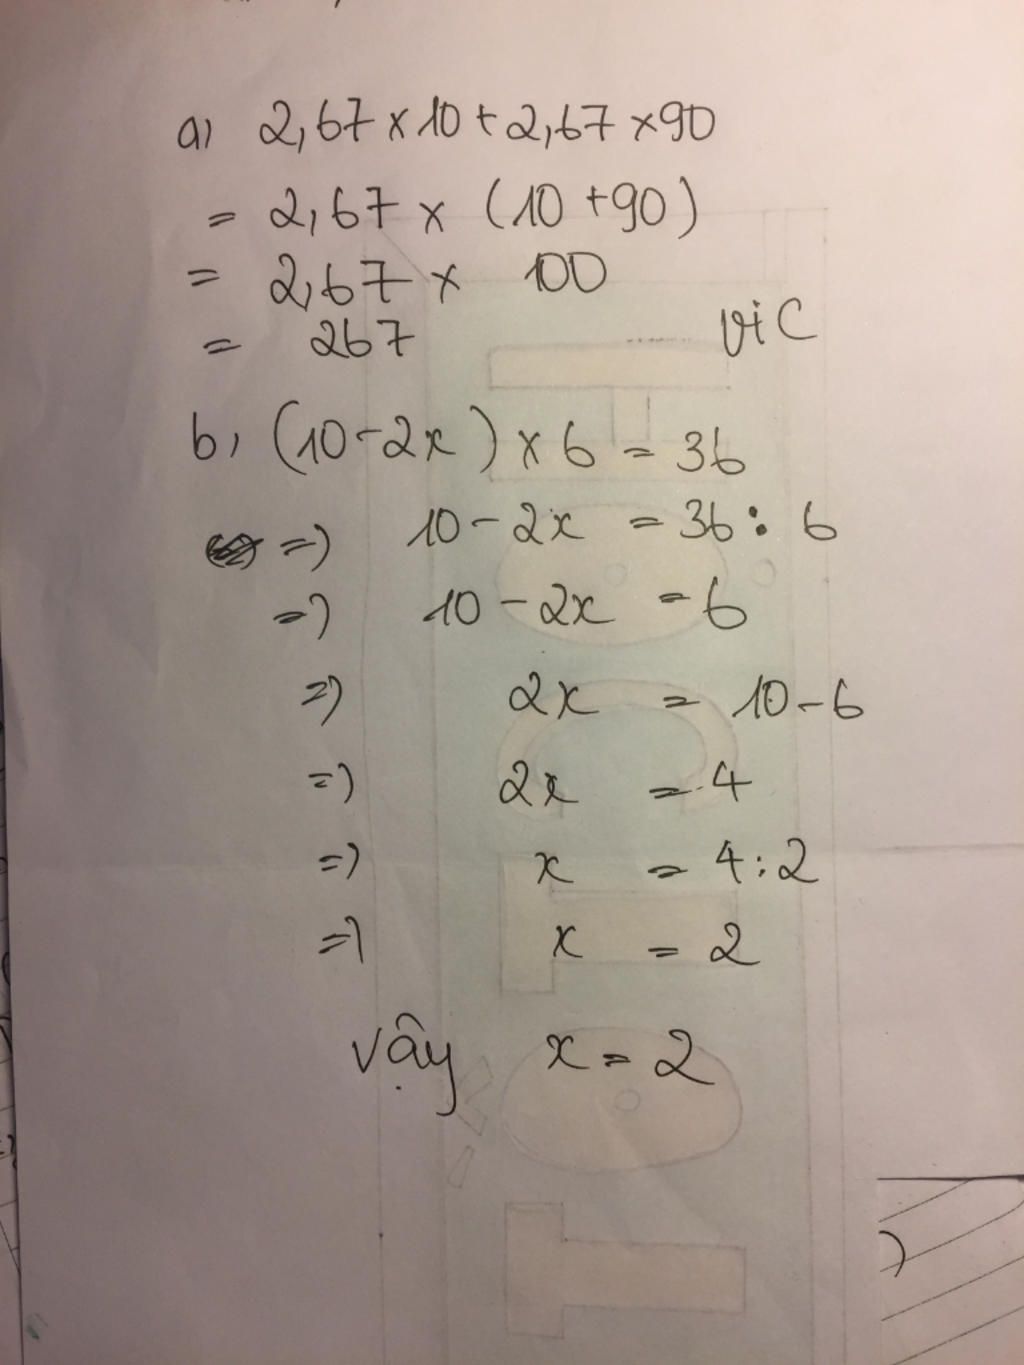 a) 2,67 x 10 + 2,67 x 90
= 2,67 x (10 + 90)
= 2,67 x 100
= 267
ViC
b, (10 - 2x) x 6 = 36
=) 10 - 2x = 36 : 6
=) 10 - 2x = 6
=) 2x = 10 - 6
=) 2x = 4
=) x = 4 : 2
=) x = 2
vậy x = 2